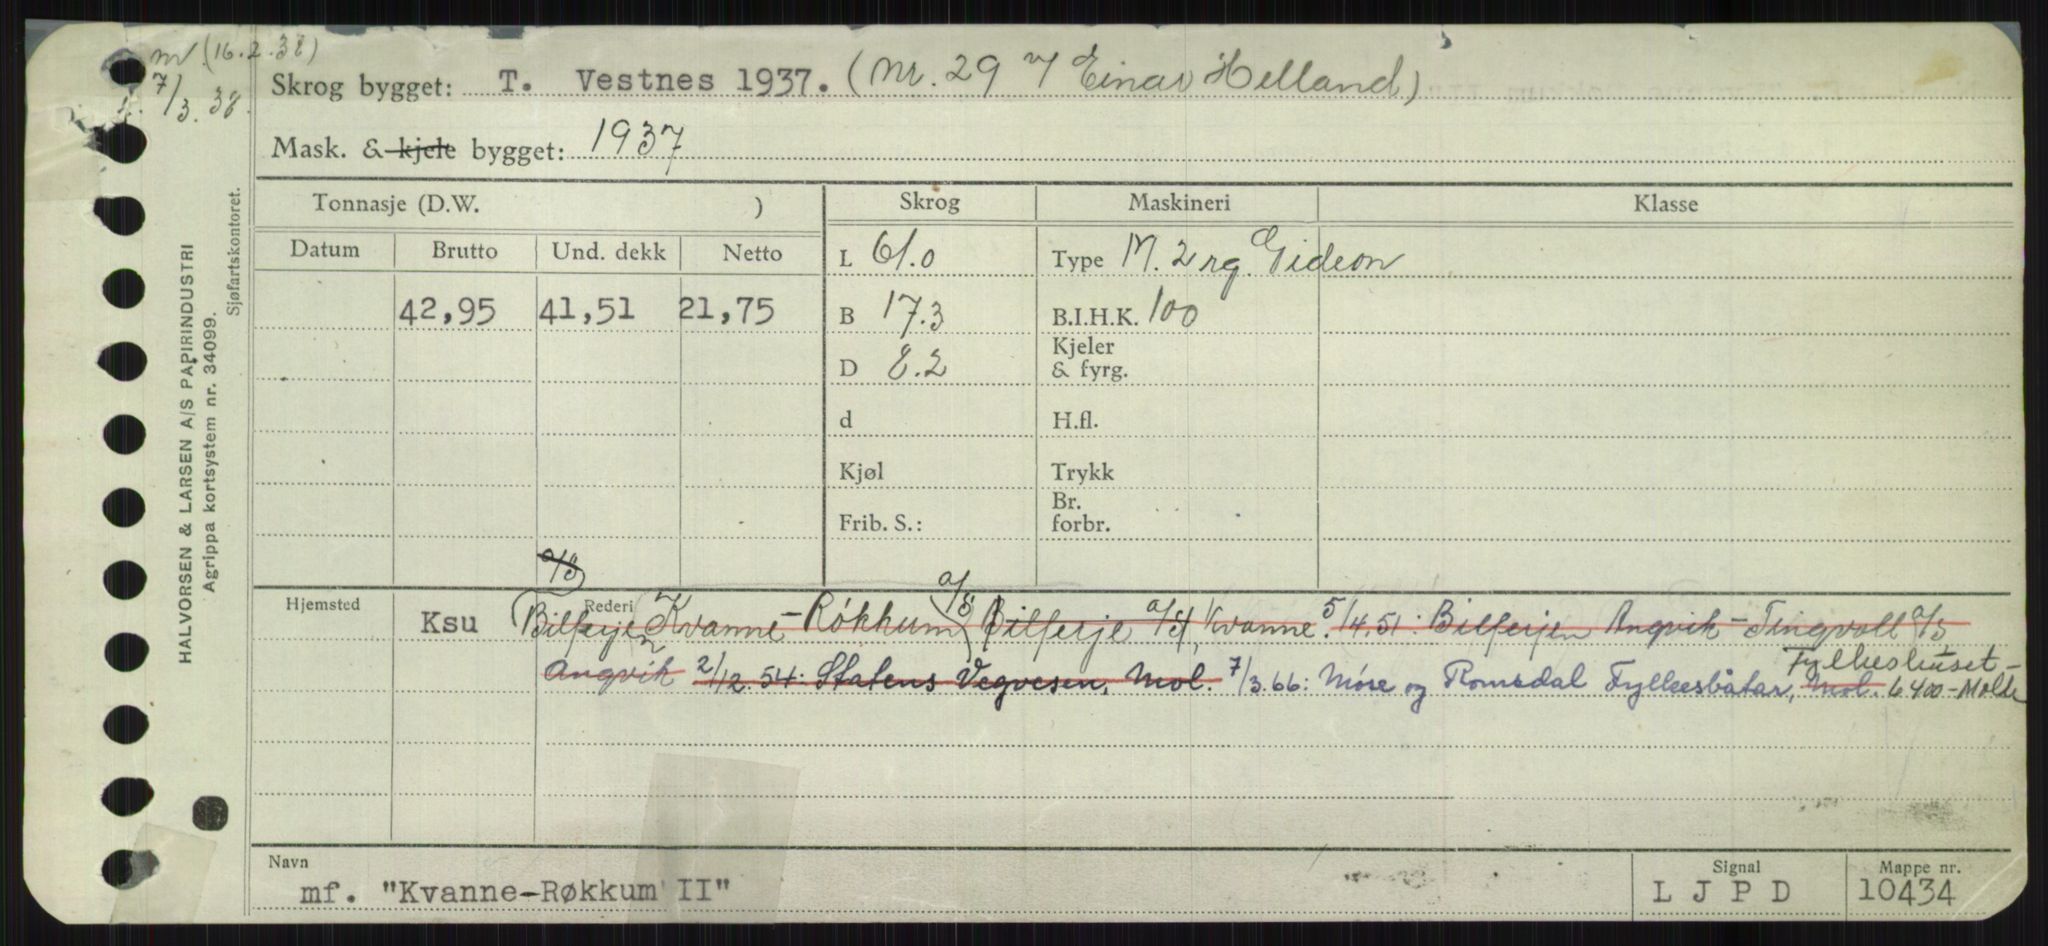 m/ (16.2.38)
7/3.38.
Skrog bygget: T. Vestnes 1937. (Nr. 29 v/ Einar Helland)
Mask. & kjele bygget: 1937
Tonnasje (D.W. )
Skrog
Maskineri
Klasse
Datum
Brutto
Und. dekk
Netto
L 61.0
Type M. 2 rg. Gideon
42,95 41,51 21,75
B 17.3
B.I.H.K. 100
D 8.2
Kjeler
& fyrg.
d
H.fl.
Kjøl
Trykk
Frib. S.:
Br.
forbr.
a/s
a/s
Hjemsted
Rederi
Ksu Bilferjen Kvanne-Røkkum Bilferje a/s, Kvanne. 5/4.51: Bilferjen Angvik-Tingvoll a/s
Fylkeshuset-
Angvik 2/12.54: Statens Vegvesen, Mol. 7/3.66: Møre og Romsdal Fylkesbåtar, Mol. 6400-Molde
Navn
Signal
Mappe nr.
mf. "Kvanne-Røkkum II"
L J P D
10434
HALVORSEN & LARSEN A/S PAPIRINDUSTRI
Agrippa kortsystem nr. 34099.
Sjøfartskontoret.